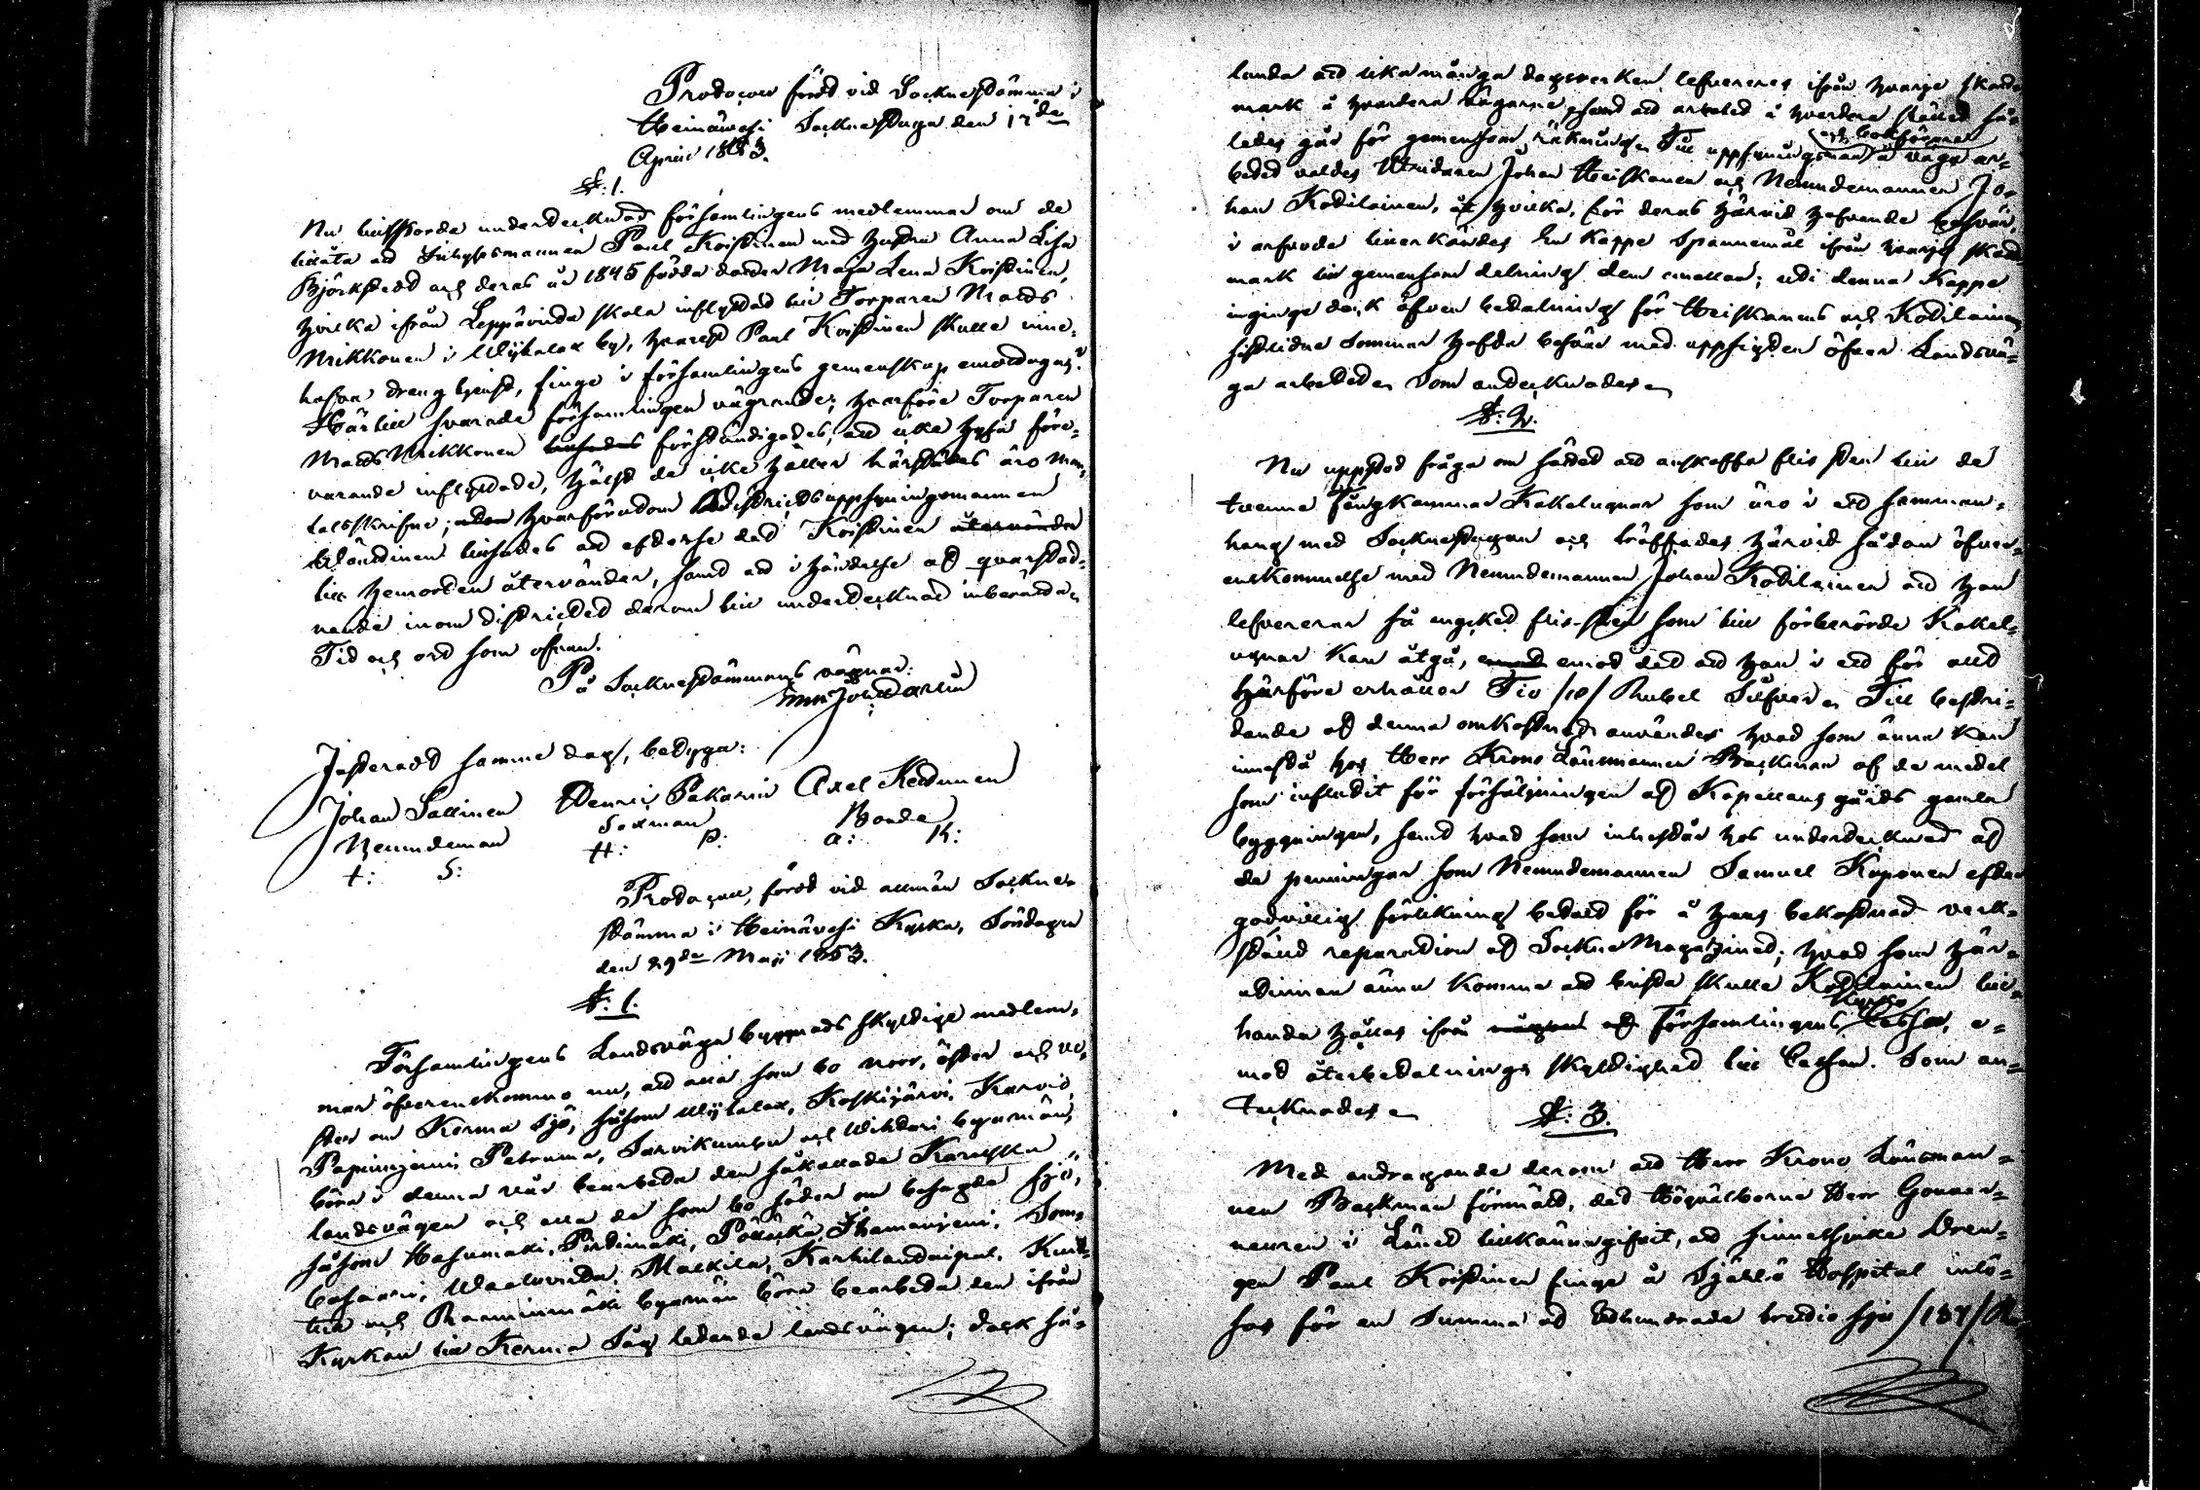 Protocoll fördt vid Socknestämma i
Heinävesi Socknestuga den 17de
April 1853.
§: 1.
Nu tillsporde undertecknad församlingens medlemmar om de
tillåta att Inhysesmannen Paul Koistinen med hustru Anna Lisa
Björkstedt och deras år 1845 födda dotter Maja Lena Koistinen,
hvilka ifrån Leppävirta skola inflyttad till Torparen Matts
Mikkonen i Wihtalax by, hvarest Paul Koistinen skulle inne-
hafva drengtjenst, finge i församlingens gemenskap emottagas?
Härtill svarade församlingen vägrande; hvarföre Torparen
Matts Mikkonen förständigades, att icke hysa före-
varande inflyttade, hälst de icke heller härstädes äro man-
talsskrifne; hvarförutom districtsuppsyningsmannen
tillsades att efterse det Koistinen
till hemorten återvänder, samt att i händelse af qvarstad-
nande inom districtet derom till undertecknad inberätta.
Tid och ord som ofvan.
På Socknestämmans vägnar:
Justeradt samma dag, betyga:
Johan Sallinen Henric Pakarin Axel Kettunen
Nemndeman Sexman Bonde
J: S: H: P: A: K:
Protocoll, fördt vid allmän Sockne-
stämma i Heinävesi Kyrka, Söndagen
den 29de Maji 1853.
§: 1.
Församlingens Landsväga byggnads skyldige medlem-
mar öfverenskommo nu, att alla som bo norr, öster och ve-
ster om Kerma sjö, såsom Wihtalax, Koskijärvi, Karvio,
Papinniemi, Petruma, Sarvikumpu och Wihtari byamän,
böra i denna vår bearbeta den såkallade Karviska
landsvägen och alla de som bo söder om besagde sjö,
såsom Hasumäki, Pirtimäki, Pölläkkä, Ihamaniemi, Som-
bosaari, Waaluvirta, Malkila, Karhilandaipal, Kut-
tila och Rummimäki byamän böra bearbeta den ifrån
Kyrkan till Kerma Såg ledande landsvägen; dock så-
lunda att lika många dagsverken lefvereres ifrån hvarje skatt-
mark å hvardera vägarne, samt att arbetet å hvardera stället så-
ledes går för gemensam räkning. Till uppsyningsman
och bokförare å väga ar-
betet valdes Utridaren Johan Heiskanen och Nemndemannen Jo-
han Kotilainen, åt hvilka, för deras härvid hafvande besvär,
i arfvode tillerkändes En kappe Spannemål ifrån hvarje skatt-
mark till gemensam delning dem emellan; uti denna Kappe
inginge dock äfven betalning för Heiskanens och Kotilainens
sistlidne Sommar hafda besvär med uppsigten öfver Landsvä-
ga arbetet. Som antecknades.
§: 2.
Nu uppstod fråga om sättet att anskaffa flis sten till de
tvenne Tingkammar Kakelugnar som äro i ett samman-
hang med Socknestugan och träffades härvid sådan öfver-
enskommelse med Nemndemannen Johan Kotilainen att han
lefvererar så mycket flis-sten som till förberörde Kakel-
ugnar kan åtgå, emot det att han i ett för allt
härföre erhåller Tio /10/ Rubel Silfver. Till bestri-
dande af denna omkostnad användes hvad som ännu kan
innestå hos Herr Krono Länsmannen Backman af de medel
som influtit för försäljningen af Kapellans gårds gamla
byggningen, samt hvad som innestår hos undertecknad af
de penningar som Nemndemannen Samuel Kuponen efter
godvillig förlikning betalt för å hans bekostnad verk-
ställd reparation af Sockne Magazinet; hvad som här-
utinnan ännu komme att brista skulle Kotilainen till-
handa hållas ifrån Församlingens Kyrko Cassa, e-
mot återbetalnings skyldighet till Cassan. Som an-
tecknades.
§: 3.
Med andragande derom att Herr Krono Länsman-
nen Backman förmält, det Högvälborne Herr Gouver-
neuren i Länet tillkännagifvit, att sinnessjuke Dren-
gen Paul Koistinen finge å Själlö Hospital inlö-
sas för en Summa af Etthundrade trettio sju /137/